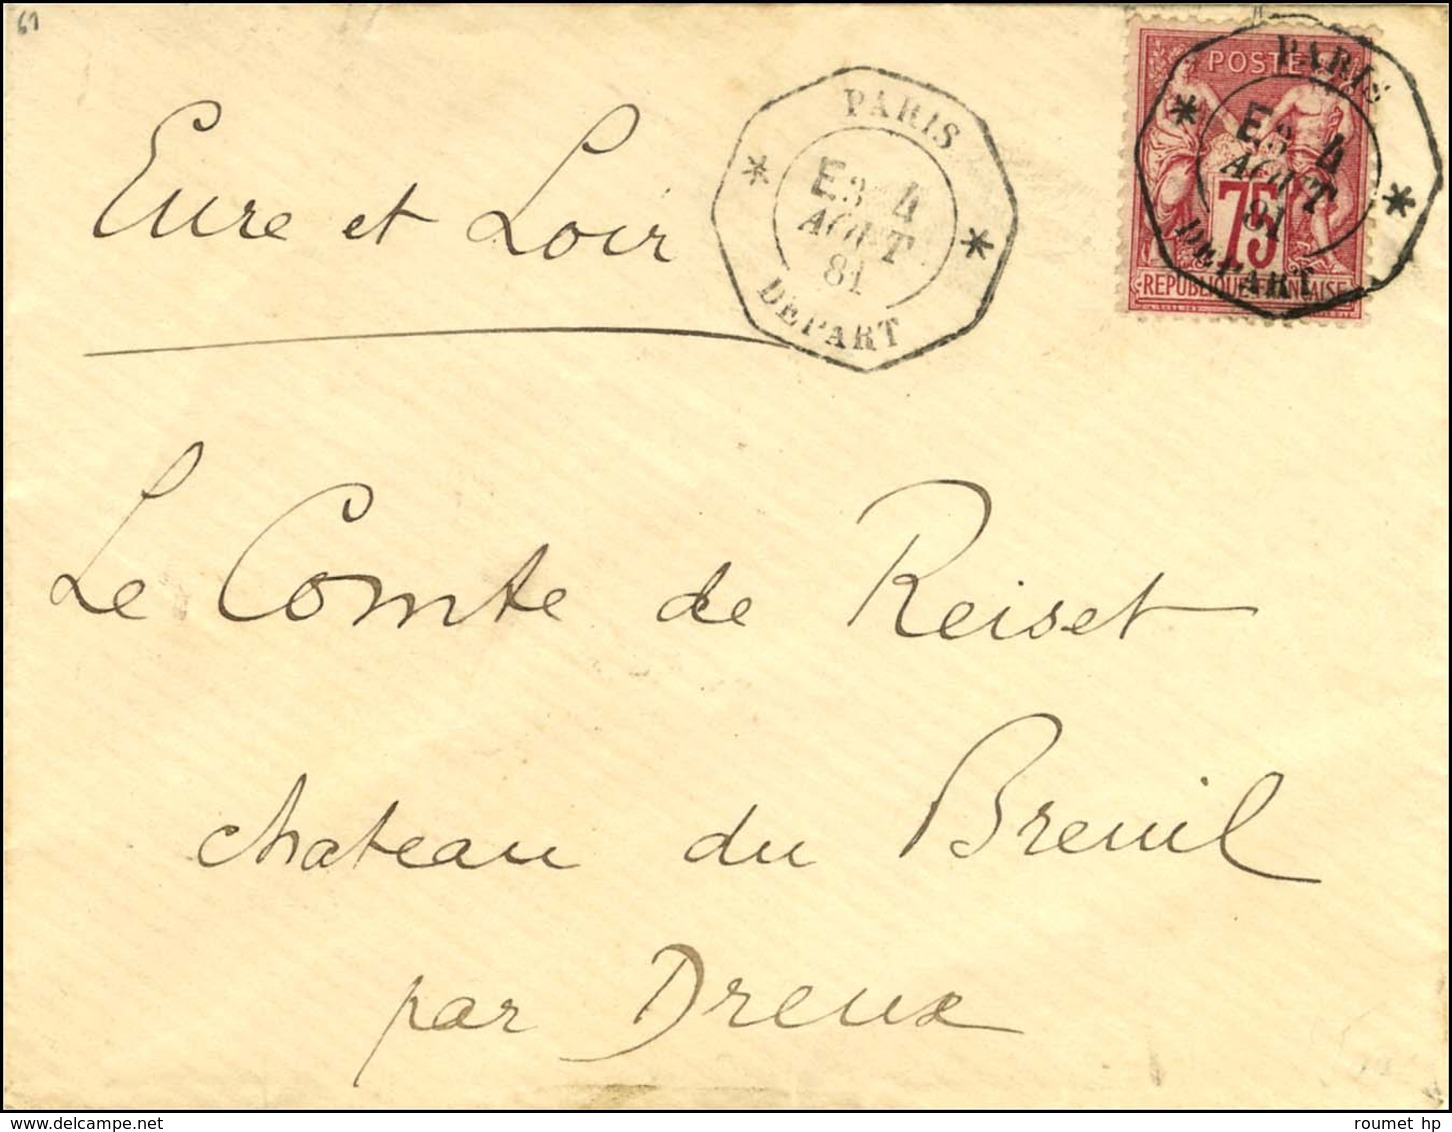 61
PARIS
E3 4
AOUT
81
DEPART
POSTES
75
REPUBLIQUE FRANÇAISE
PARIS
E3 4
AOUT
81
DEPART
Eure et Loir
Le Comte de Reiset
chateau du Breuil
par Dreux
roumet hp